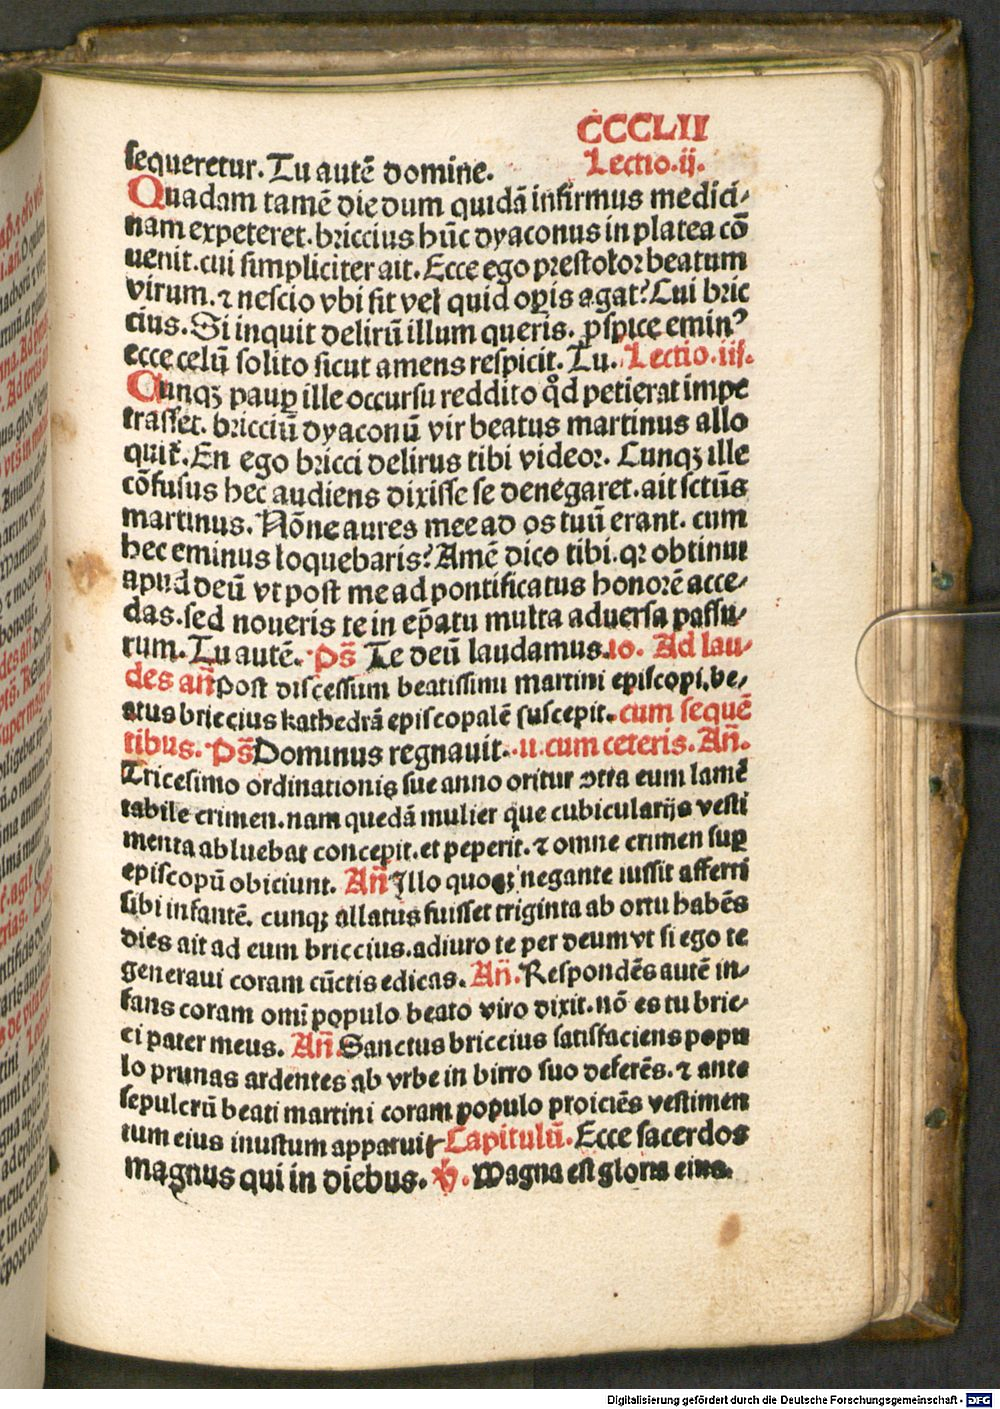 CCCLII
sequeretur. Tu autē domine. Lectio.ij.
Quadam tamē die dum quidā infirmus medici⸗
nam expeteret. briccius hūc dyaconus in platea cō
uenit. cui simpliciter ait. Ecce ego prestolor beatum
virum. ⁊ nescio vbi sit vel quid oꝑis agat? Cui bric
cius. Si inquit delirū illum queris. ꝓspice emin⁹
ecce celū solito sicut amens respicit. Tu. Lectio.iij.
Cunqꝫ pauꝑ ille occursu reddito qd̓ petierat impe
trasset. bricciū dyaconū vir beatus martinus allo
quit̃. En ego bricci delirus tibi videor. Cunqꝫ ille
cōfusus hec audiens dixisse se denegaret. ait sctūs
martinus. Nōne aures mee ad os tuū erant. cum
hec eminus loquebaris? Amē dico tibi. qꝛ obtinui
apud deū vt post me ad pontificatus honorē acce⸗
das. sed noueris te in ep̄atu multa aduersa passu⸗
rum. Tu autē. Ps̄ Te deū laudamus. io. Ad lau⸗
des an̄ Post discessum beatissimi martini episcopi. be⸗
atus briccius kathedrā episcopalē suscepit. cum sequē
tibus. Ps̄ Dominus regnauit. .u. cum ceteris. An̄.
Tricesimo ordinationis sue anno oritur ꝯtra eum lamē
tabile crimen. nam quedā mulier que cubicularijs vesti
menta abluebat concepit. et peperit. ⁊ omne crimen suꝑ
episcopū obiciunt. An̄ Illo quoqꝫ negante iussit afferri
sibi infantē. cunqꝫ allatus fuisset triginta ab ortu habēs
dies ait ad eum briccius. adiuro te per deum vt si ego te
generaui coram cūctis edicas. An̄. Respondēs autē in⸗
fans coram omi populo beato viro dixit. nō es tu bric⸗
ci pater meus. An̄. Sanctus briccius satisfaciens popu
lo prunas ardentes ab vrbe in birro suo deferēs. ⁊ ante
sepulcrū beati martini coram populo proiciēs vestimen
tum eius inustum apparuit Capitulū. Ecce sacerdos
magnus qui in diebus. ℣. Magna est gloria eius.
Digitalisierung gefördert durch die Deutsche Forschungsgemeinschaft - DFG